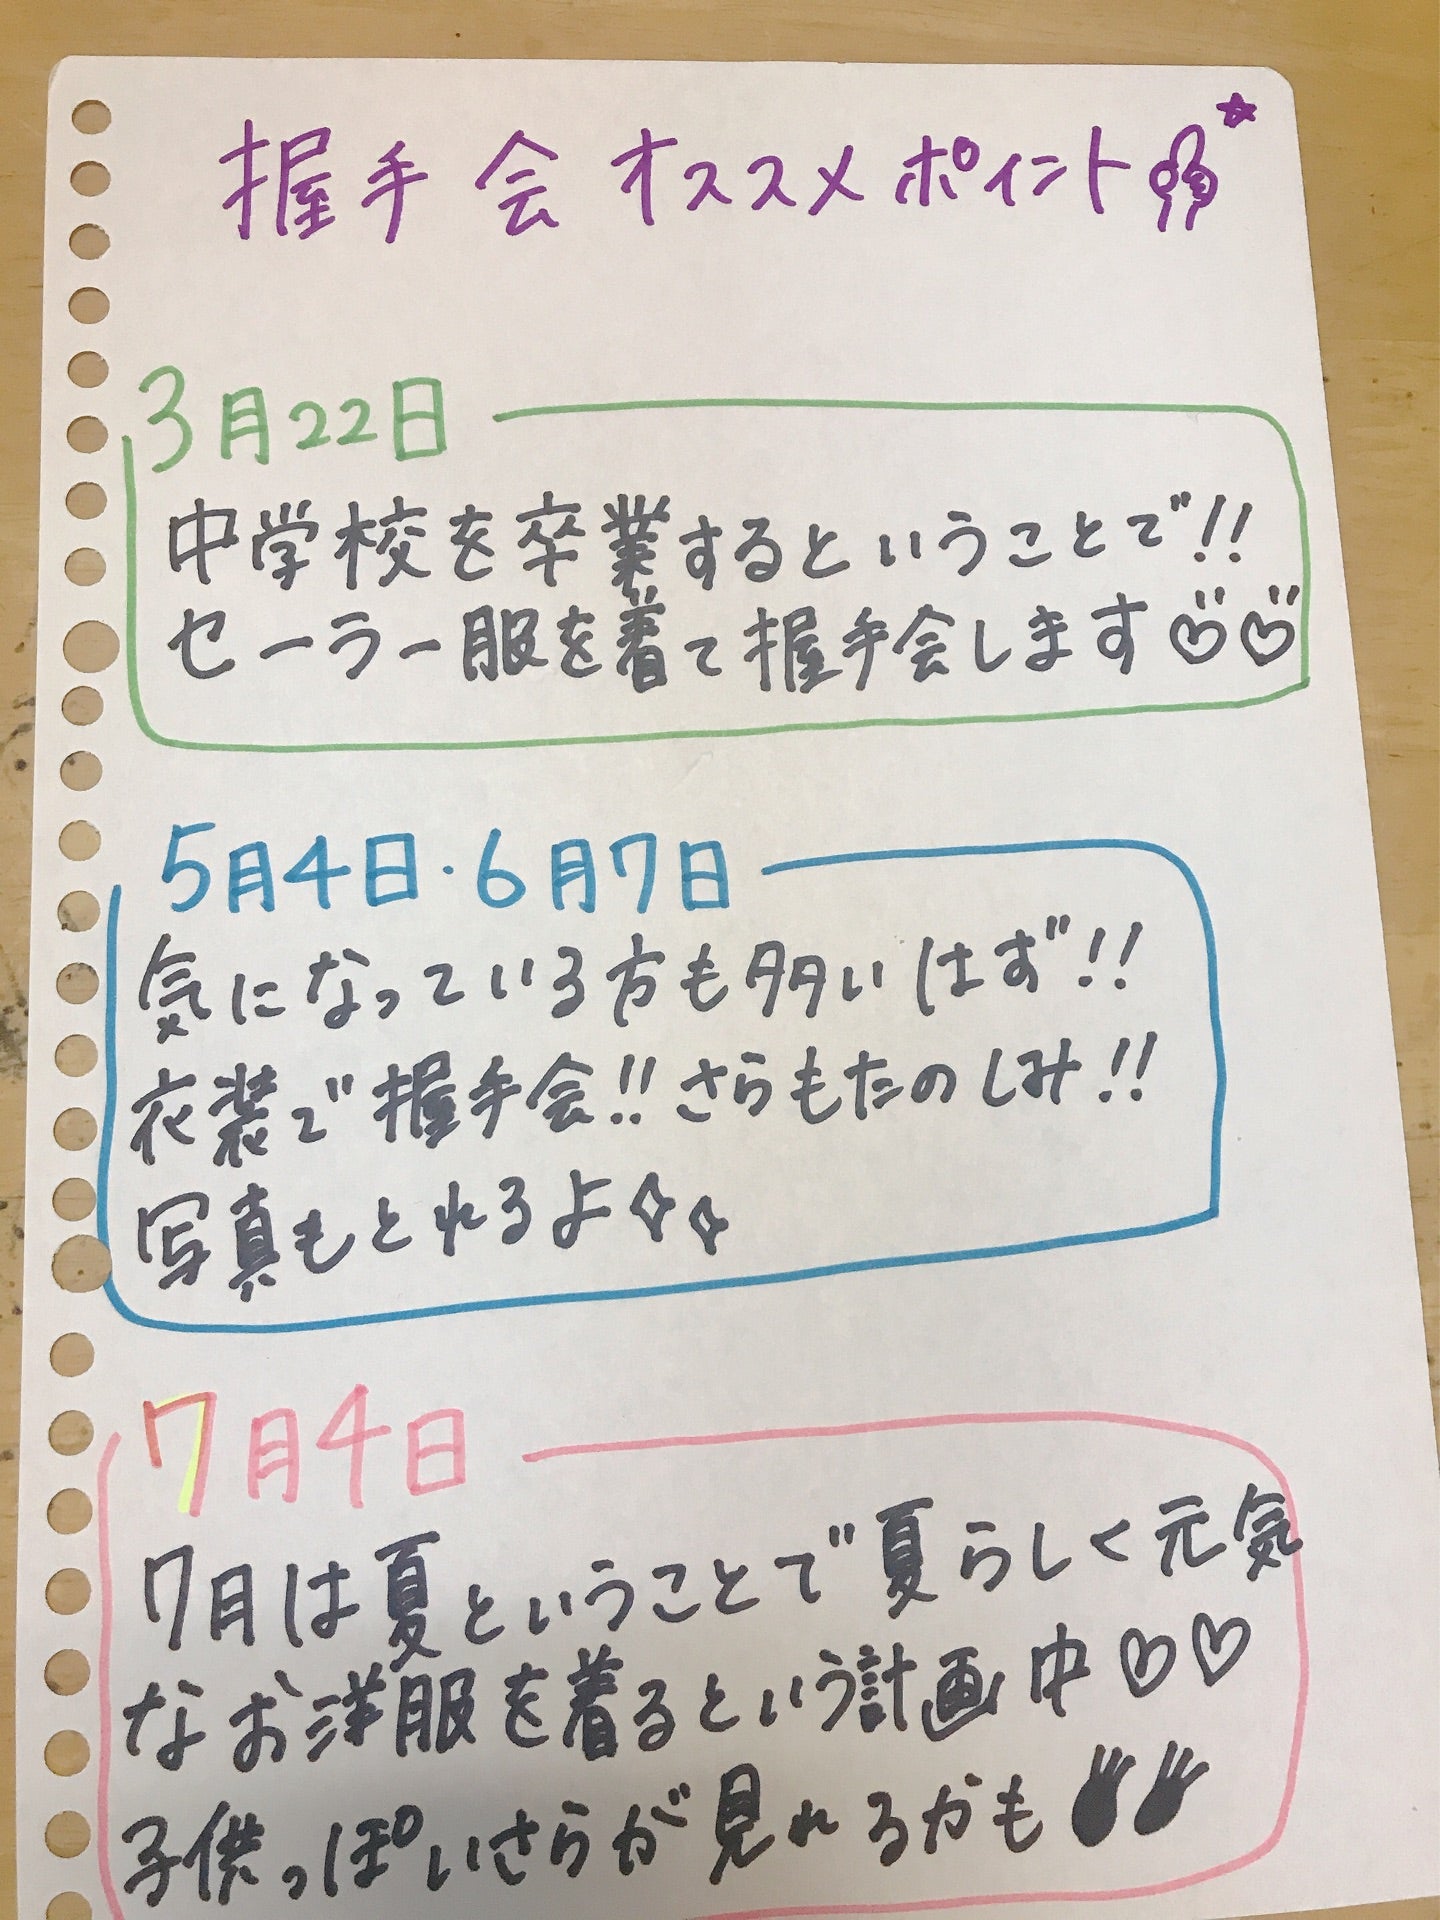 握手会オススメポイント
3月22日
中学校を卒業するということで!!
セーラー服を着て握手会します♡♡
5月4日・6月7日
気になっている方も多いはず!!
衣装で握手会!!さらもたのしみ!!
写真もとれるよ
7月4日
7月は夏ということで夏らしく元気
なお洋服を着るという計画中♡♡
子供っぽいさらが見れるかも